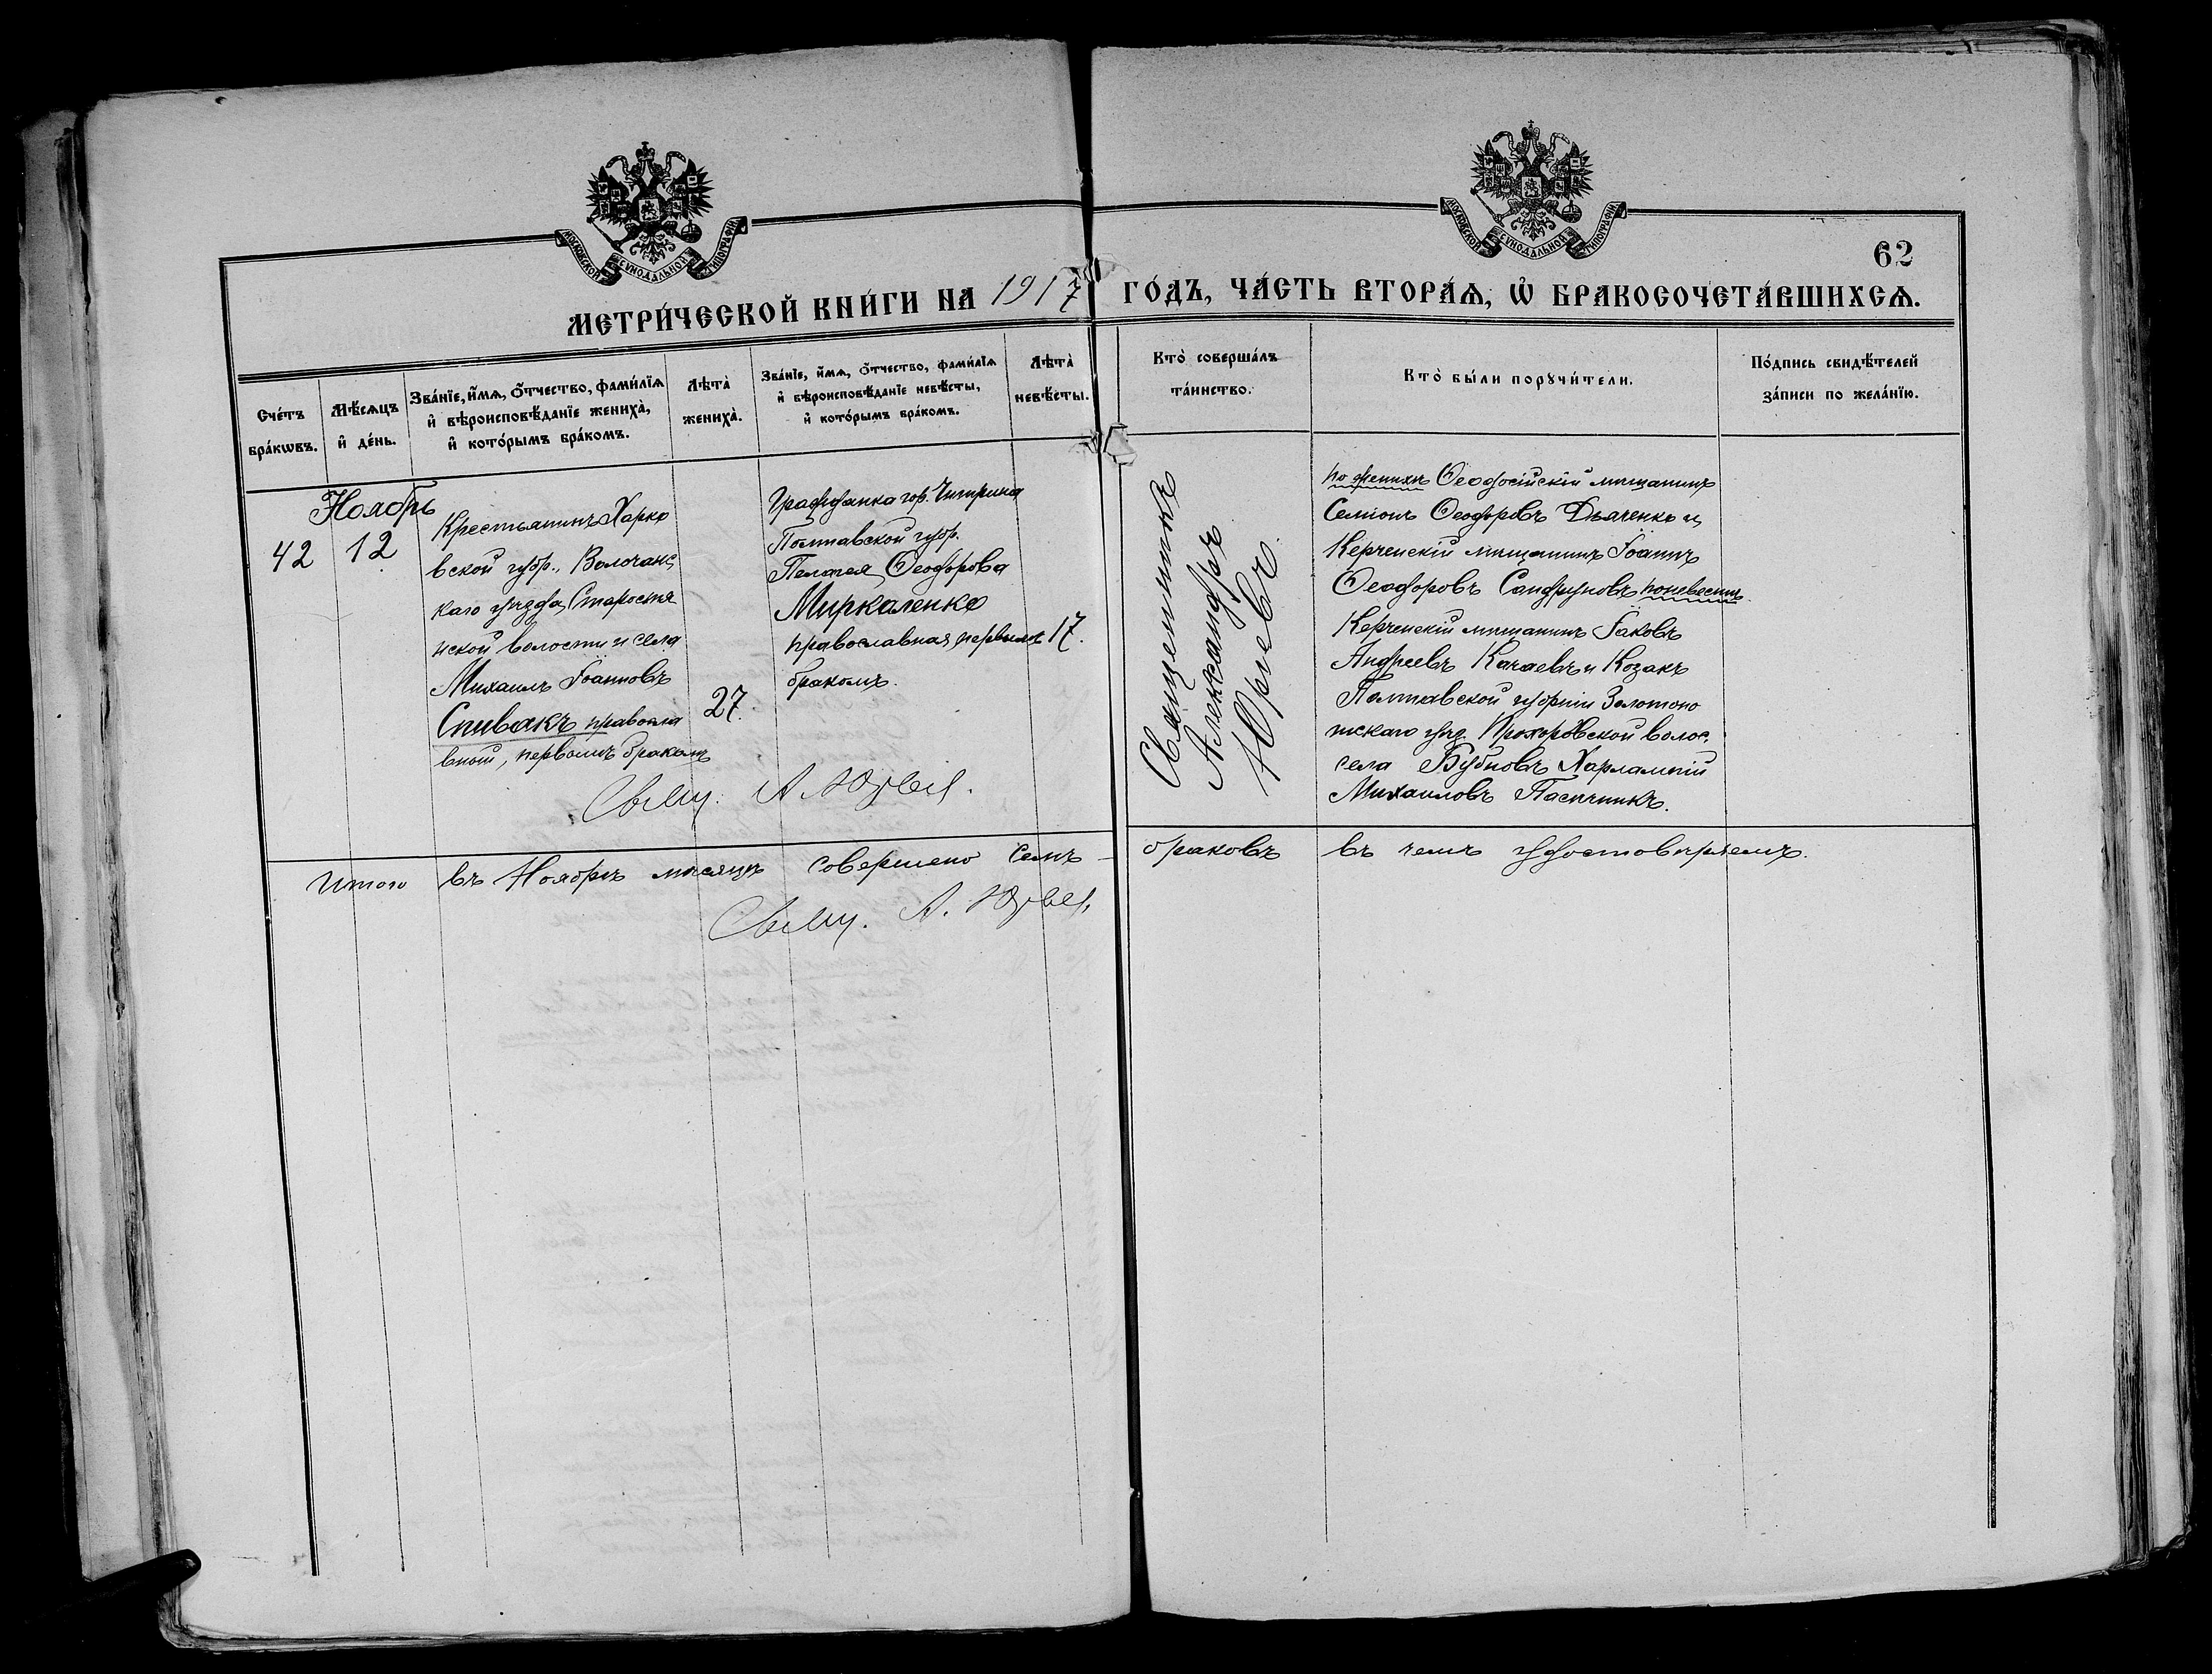 МОСКОВСКОЙ СѴНОДАЛЬНОЙ ТИПОГРАФІИ
МОСКОВСКОЙ СѴНОДАЛЬНОЙ ТИПОГРАФІИ
62
МЕТРИ́ЧЕСКОЙ КНИ́ГИ НА 1917 ГО́ДЪ, ЧА́СТЬ ВТОРА́Ѧ, Ѽ БРАКОСОЧЕТА́ВШИХСѦ.
Сче́тъ
бра́кѡвъ.
Мѣ́сѧцъ
и҆ де́нь.
Зва́нїе, и҆́мѧ, ѻ҆́тчество, фами́лїѧ
и҆ вѣроисповѣ́данїе жениха̀,
и҆ кото́рымъ бра́комъ.
Лѣта̀
жениха̀.
Зва́нїе, и҆́мѧ, ѻ҆́тчество, фами́лїѧ
и҆ вѣроисповѣ́данїе невѣ́сты,
и҆ кото́рымъ бра́комъ.
Лѣта̀
невѣ́сты.
Кто̀ соверша́лъ
та́инство.
Кто̀ бы́ли порꙋчи́тели.
По́дпись свидѣ́телей
за́писи по жела́нїю.
Ноябрь
42
12
Крестьянинъ Харько
вской губ., Волчанс
каго уѣзда, Старосья
нской волости и села
Михаилъ Іоанновъ
Спивакъ правосла
вной, первымъ бракомъ
27.
Гражданка гор.
Полтавской губ.
Пелагея Ѳеодорова
Миркаленко
православная первымъ
бракомъ.
17.
Священникъ
Александръ
Юрьевъ.
по женихѣ Ѳеодосійскій мѣщанинъ
Семіонъ Ѳеодоровъ Дьяченко и
Керченскій мѣщанинъ Іоаннъ
Ѳеодоровъ Сандруновъ по невѣстѣ
Керченскій мѣщанинъ Іаковъ
Андреевъ Качаевъ и Козакъ
Полтавской губерніи Золотоно
шскаго уѣзд. Прохоровской волос.
села Бубновъ Харлампій
Михаиловъ Пасечникъ.
Свящ. А. Юрьев.
Итого въ Ноябрѣ мѣсяцѣ совершено семь – браковъ въ чемъ удостовѣряемъ.
Свящ. А. Юрьев.